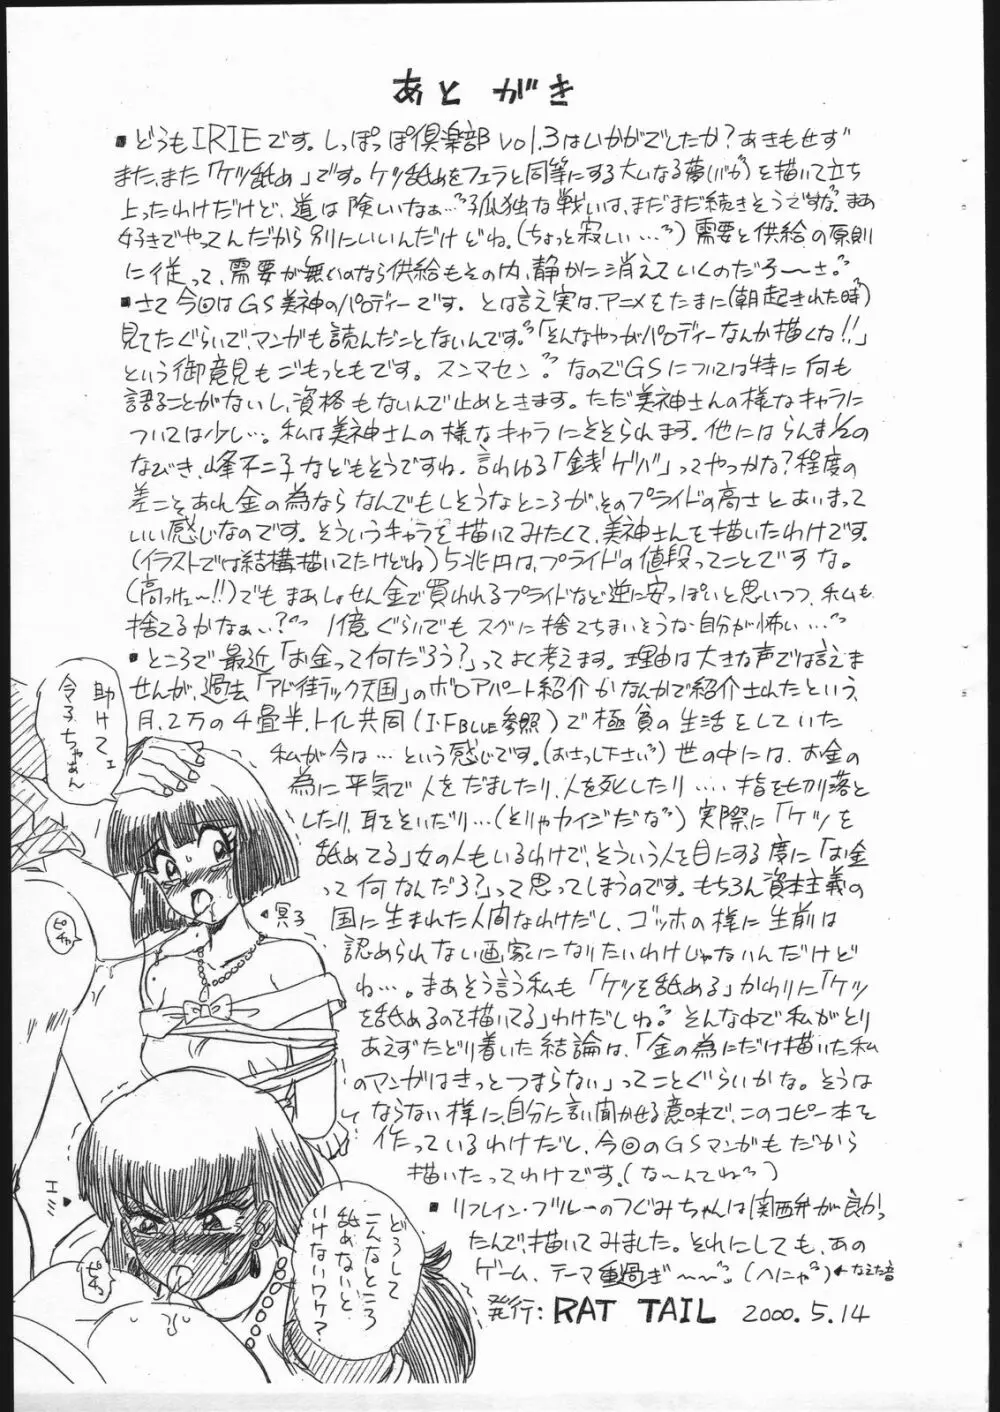 あとがき
▪どうもIRIEです。しっぽっぽ倶楽部vol.3はいかがでしたか?あきもせず
また、また「ケツ舐め」です。ケツ舐めをフェラと同等にする大いなる夢(バカ)を描いて立ち
上ったわけだけど、道は険しいなぁ…孤独な戦いは、まだまだ続きそうですな。まあ
好きでやってんだから別にいいんだけどね。(ちょっと寂しい…)需要と供給の原則
に従って、需要が無いのなら供給もその内、静かに消えていくのだろ〜〜さ。
▪さて今回はGS美神のパロディーです。とは言え実は、アニメをたまに(朝起きれた時)
見てたぐらいで、マンガも読んだことないんです。「そんなやつがパロディーなんか描くね!!」
という御意見もごもっともです。スンマセン。なのでGSについては特に何も
語ることがないし、資格もないんで止めときます。ただ美神さんの様なキャラに
ついては少し…。私は美神さんの様なキャラにそそられます。他にはらんま1/2の
なびき、峰不二子などもそうですね。言わゆる「銭ゲバ」ってやつかな?程度の
差こそあれ金の為ならなんでもしそうなところが、そのプライドの高さとあいまって
いい感じなのです。そういうキャラを描いてみたくて、美神さんを描いたわけです。
(イラストでは結構描いてたけどね)5兆円は、プライドの値段ってことですな。
(高っけェ〜!!)でもまあしょせん金で買われるプライドなど逆に安っぽいと思いつつ、私も
捨てるかなぁ…?1億ぐらいでもスグに捨てちまいそうな自分が怖い…
▪ところで最近「お金って何だろう?」ってよく考えます。理由は大きな声では言えま
せんが、過去「アド街ック天国」のボロアパート紹介かなんかで紹介されたという、
月、2万の4畳半、トイレ共同(I・F BLUE参照)で極貧の生活をしていた
私が今は…という感じです。(おさっし下さい)世の中には、お金の
為に平気で人をだましたり、人を死したり……指を切り落と
したり、耳をそいだり…(とりゃカイジだな)実際に「ケツを
舐めてる」女の人もいるわけで、そういう人を目にする度に「お金
って何なんだろ?」って思ってしまうのです。もちろん資本主義の
国に生まれた人間なわけだし、ゴッホの様に生前は
認められない画家になりたいわけじゃないんだけど
ね…。まあそう言う私も「ケツを舐める」かわりに「ケツ
を舐めるのを描いてる」わけだしね。そんな中で私がとり
あえずたどり着いた結論は、「金の為にだけ描いた私
のマンガはきっとつまらない」ってことぐらいかな。そうは
ならない様に、自分に言い聞かせる意味で、このコピー本を
作っているわけだし、今回のGSマンガもだから
描いたってわけです。(な〜んてね)
▪リフレイン・ブルーのつぐみちゃんは関西弁が良かっ
たんで、描いてみました。それにしても、あの
ゲーム、テーマ重過ぎ〜〜。(へにゃ)←なえた音
発行:RAT TAIL 2000.5.14
助けてェ
令子ちゃぁん
ピチャ
冥子
エミ
どうして
こんなところ
舐めないと
いけないワケ?